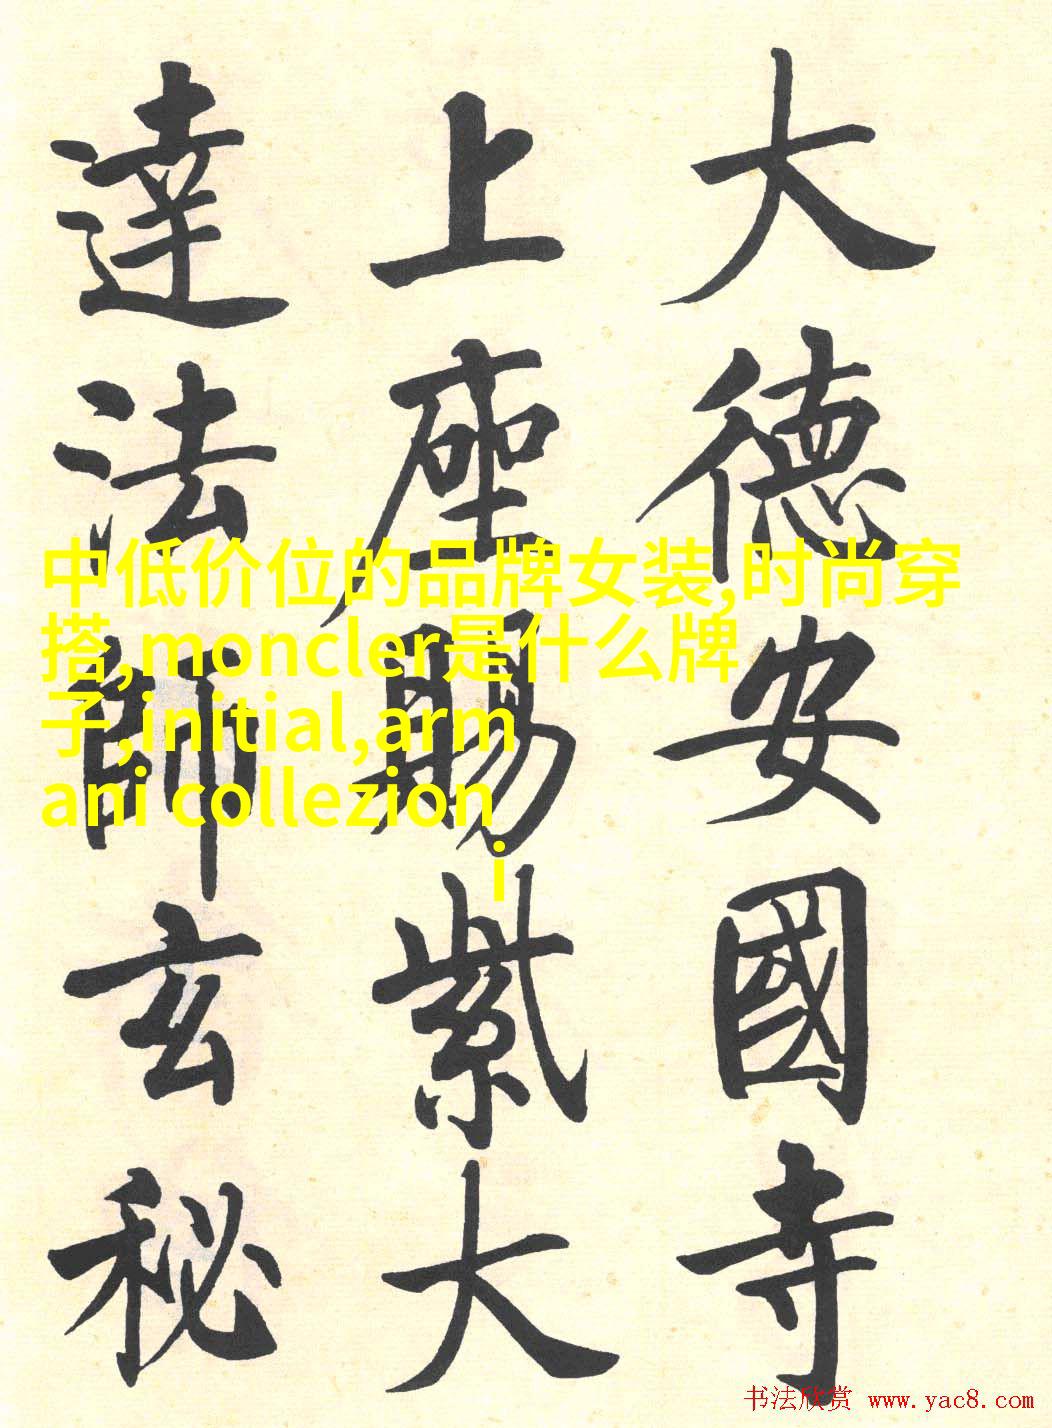 大德安國寺
上座賜紫大
達法師玄秘
中低价位的品牌女装,时尚穿
搭,moncler是什么牌
子,initial,arm
ani collezion
i
书法欣赏 www.yac8.com